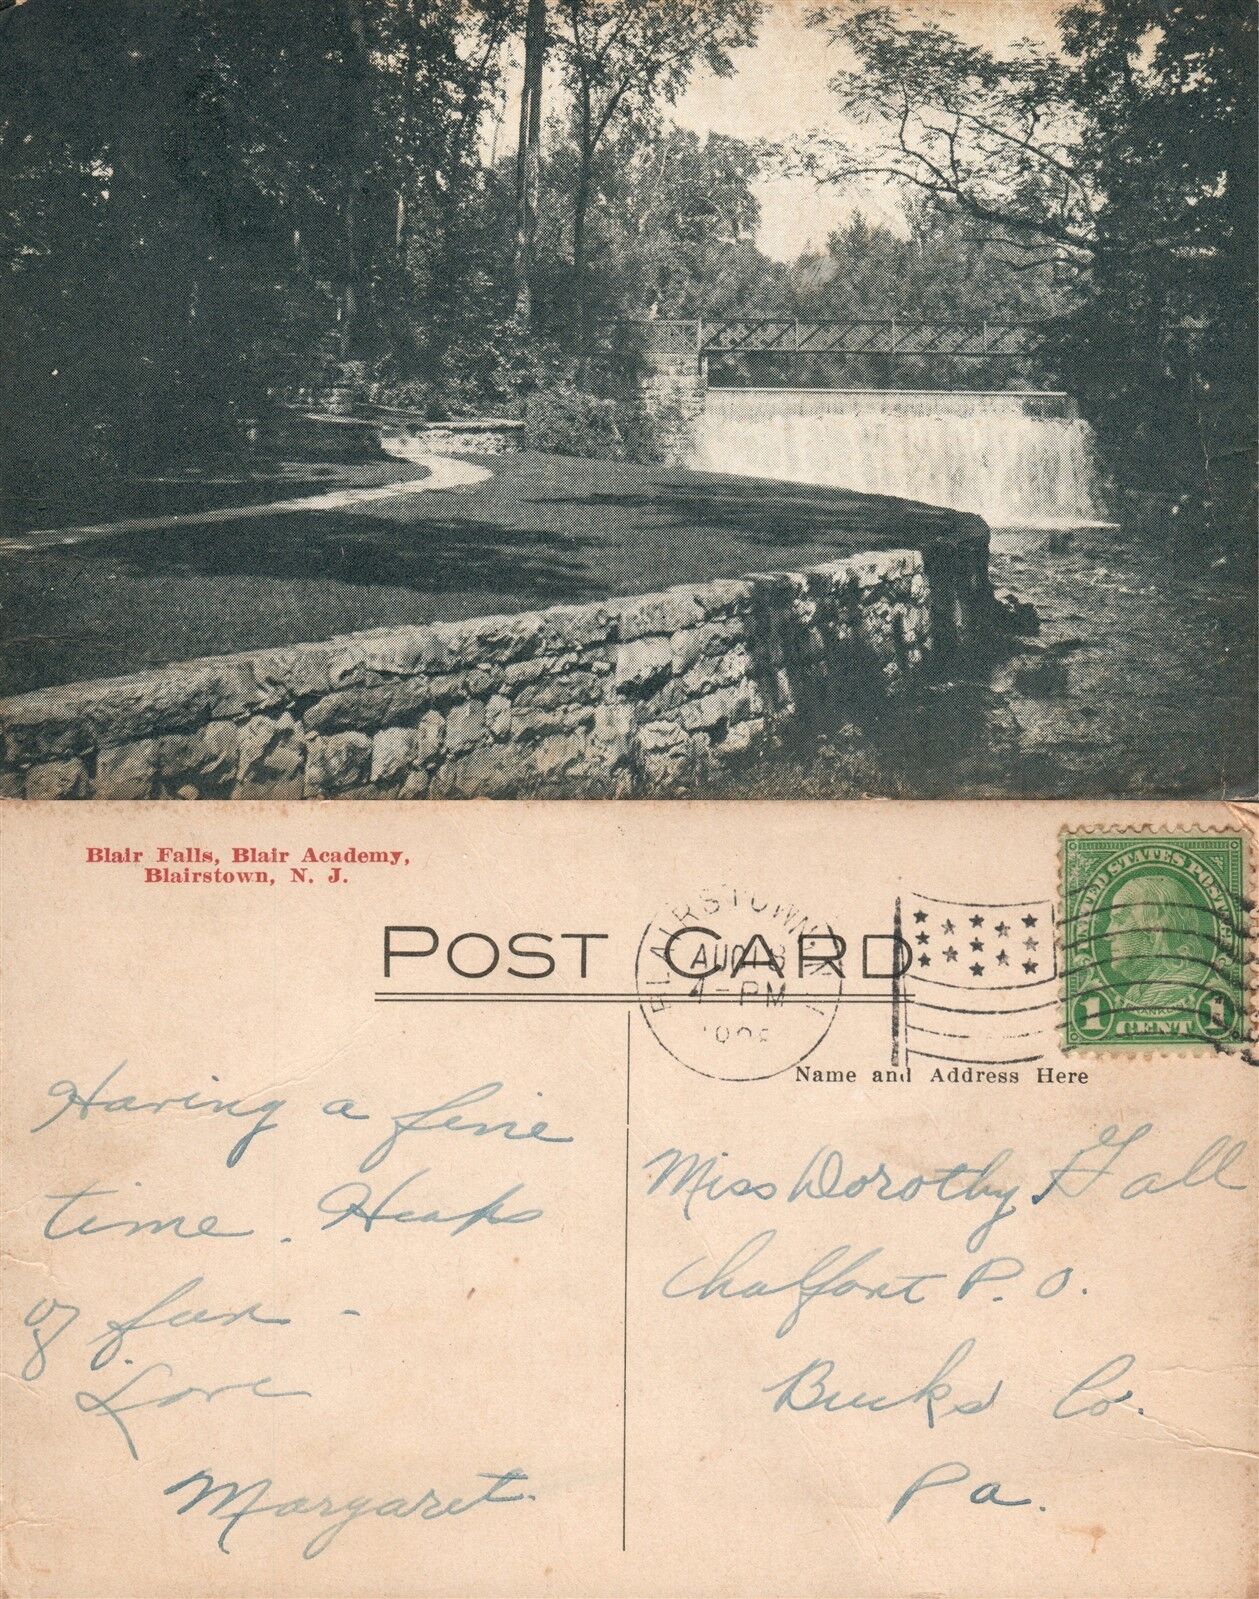 Blair Falls, Blair Academy,
Blairstown, N. J.
POST CARD
BLAIRSTOWN
AUG 18
4-PM
UNITED STATES POSTAGE
FRANKLIN
1 CENT 1
Name and Address Here
Having a fine
time. Heaps
of fun -
Love
Margaret.
Miss Dorothy Gall
Chalfont P. O.
Bucks Co.
Pa.